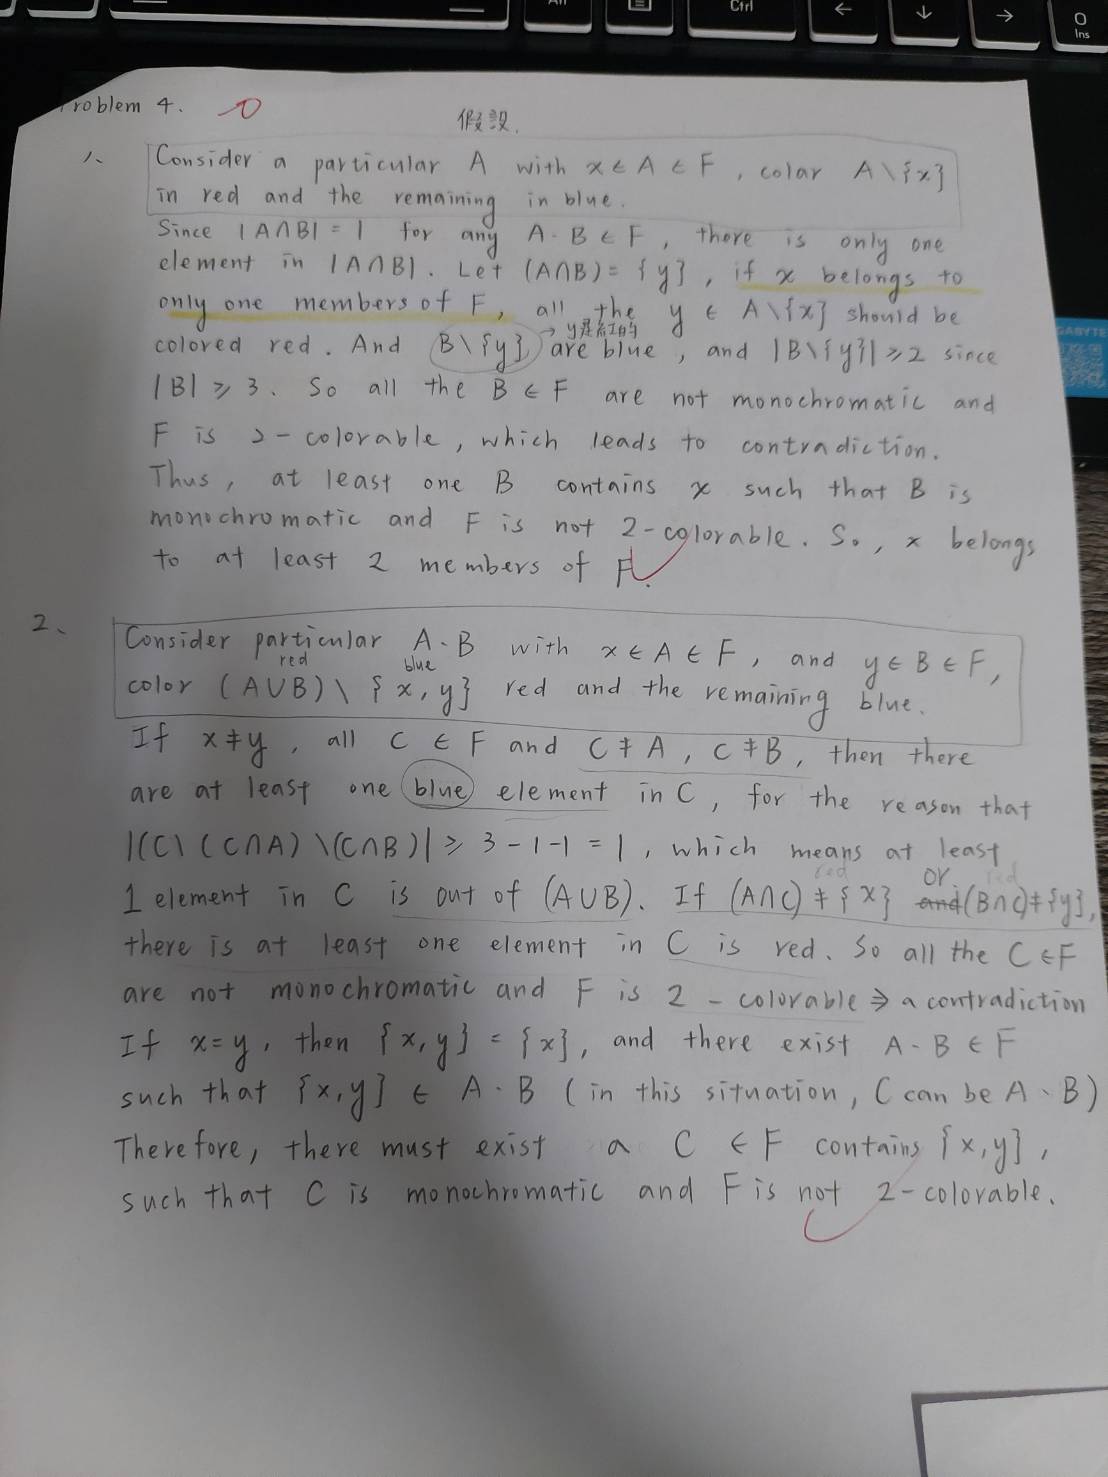 Ctrl
←
↓
→
0
Ins
GABYTE
roblem 4.
假設.
1、 Consider a particular A with x ∈ A ∈ F , colar A \ {x}
in red and the remaining in blue.
Since |A∩B| = 1 for any A、B ∈ F , there is only one
element in |A∩B|. Let (A∩B) = {y} , if x belongs to
only one members of F, all the y ∈ A\{x} should be
→ y是紅的
colored red. And (B\{y}) are blue , and |B\{y}| ≥ 2 since
|B| ≥ 3. So all the B ∈ F are not monochromatic and
F is 2-colorable, which leads to contradiction.
Thus, at least one B contains x such that B is
monochromatic and F is not 2-colorable. So, x belongs
to at least 2 members of F.
2、 Consider particular A、B with x ∈ A ∈ F , and y ∈ B ∈ F,
red blue
color (A∪B)\ {x, y} red and the remaining blue.
If x≠y , all C ∈ F and C ≠ A , C ≠ B, then there
are at least one blue element in C, for the reason that
|(C\ (C∩A) \(C∩B)| ≥ 3-1-1 = 1, which means at least
red or red
1 element in C is out of (A∪B). If (A∩C) ≠ {x} and (B∩C)≠{y},
there is at least one element in C is red. So all the C∈F
are not monochromatic and F is 2-colorable ⇒ a contradiction
If x=y, then {x, y} = {x}, and there exist A、B ∈ F
such that {x, y} ∈ A、B (in this situation, C can be A、B)
Therefore, there must exist a C ∈ F contains {x, y},
such that C is monochromatic and F is not 2-colorable.